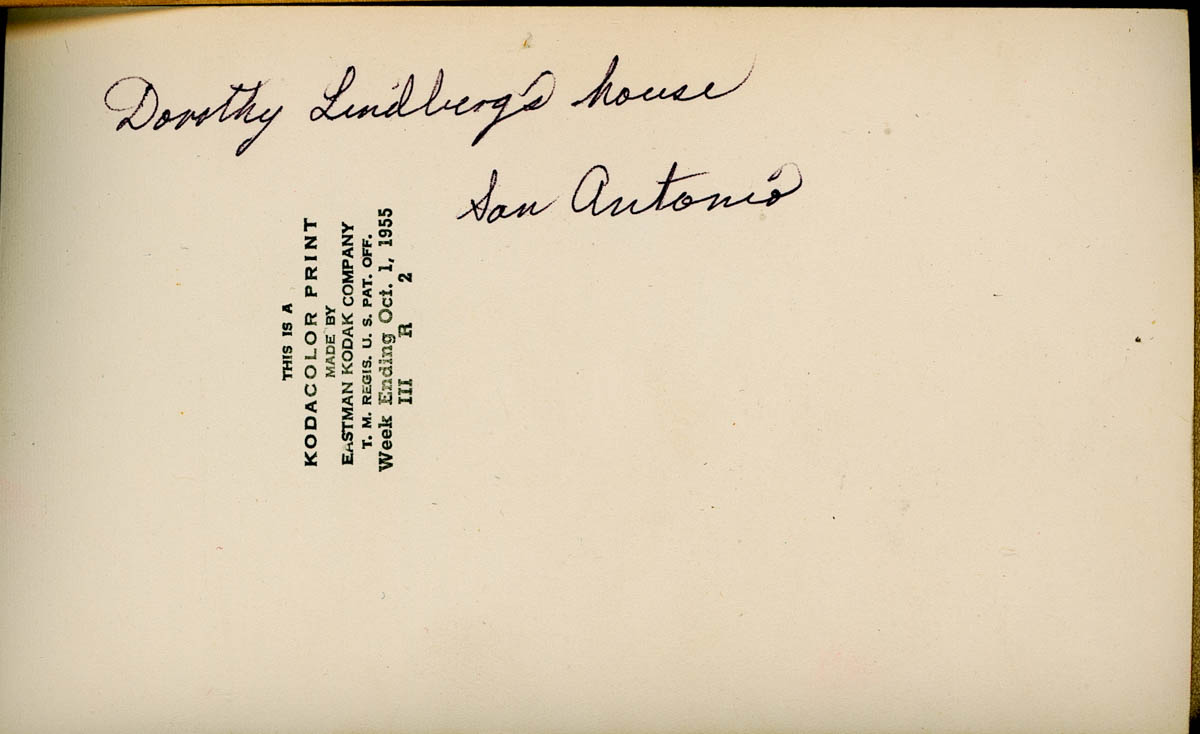 Dorothy Lindberg's house
San Antonio
THIS IS A
KODACOLOR PRINT
MADE BY
EASTMAN KODAK COMPANY
T. M. REGIS. U. S. PAT. OFF.
Week Ending Oct. 1, 1955
III R 2